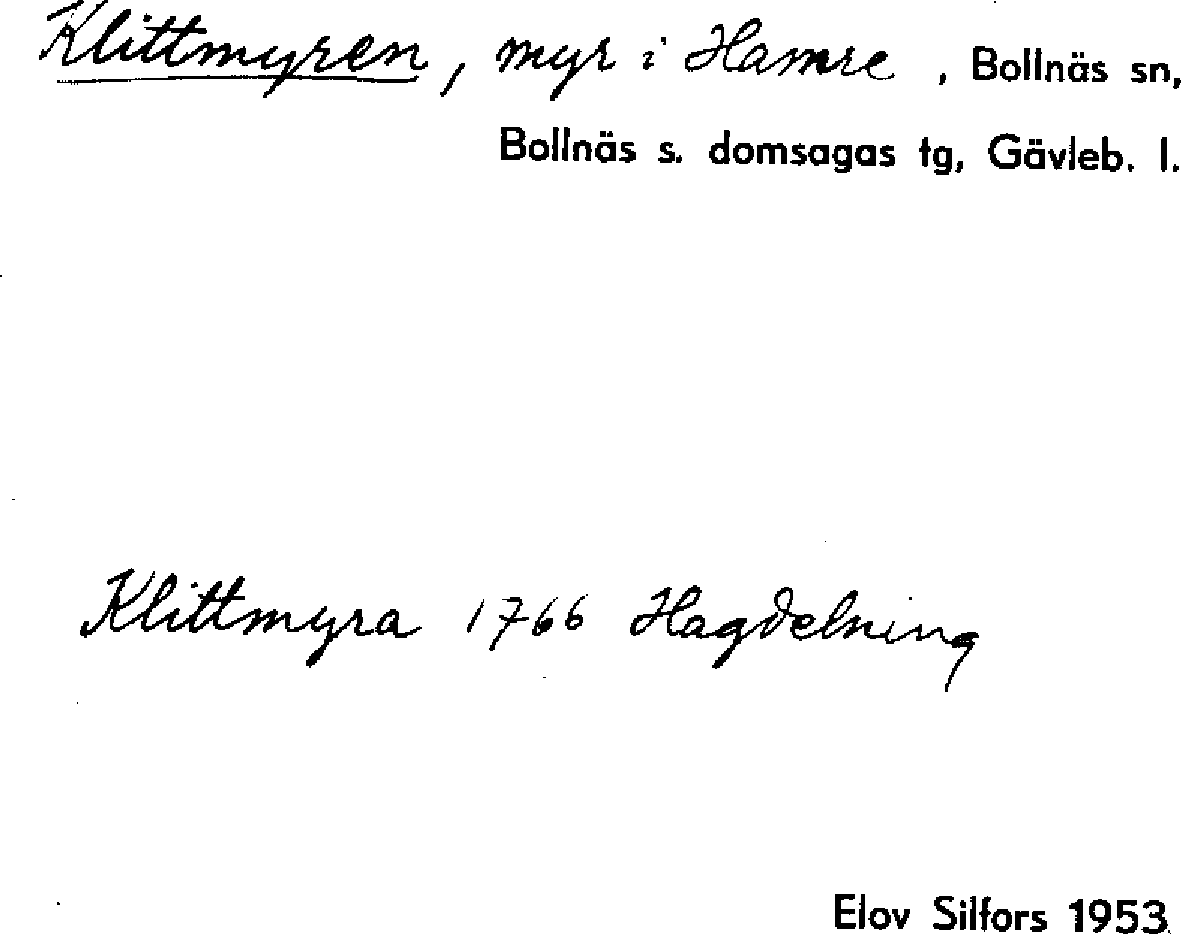 Klittmyren, myr i Hamre, Bollnäs sn,
Bollnäs s. domsagas tg, Gävleb. l.
Klittmyra 1766 Hagdelning
Elov Silfors 1953